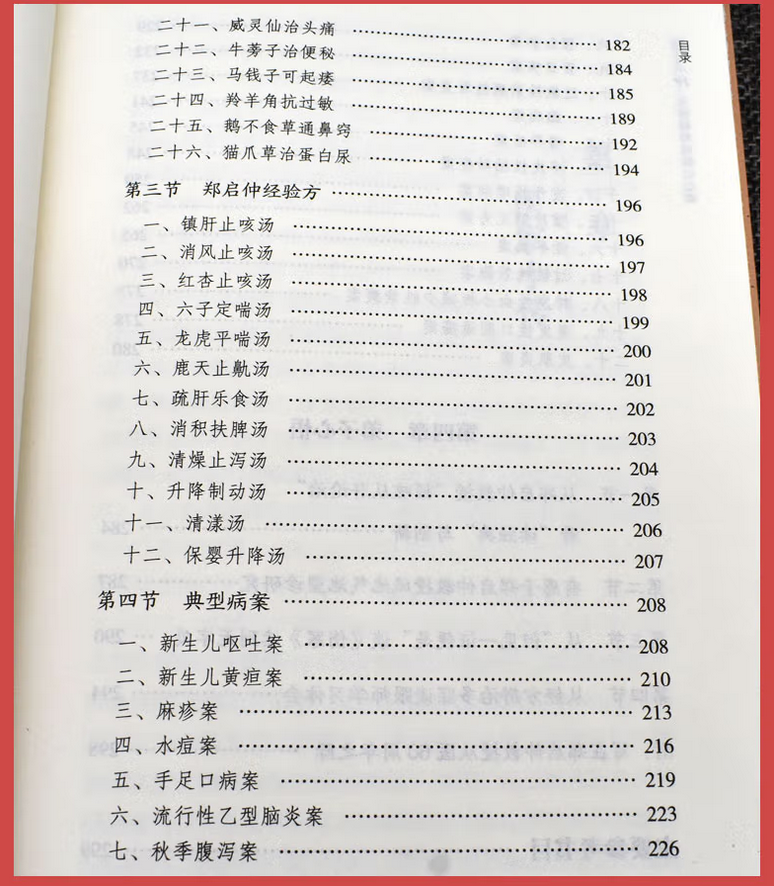 目录
二十一、威灵仙治头痛 182
二十二、牛蒡子治便秘 184
二十三、马钱子可起痿 185
二十四、羚羊角抗过敏 189
二十五、鹅不食草通鼻窍 192
二十六、猫爪草治蛋白尿 194
第三节 郑启仲经验方 196
一、镇肝止咳汤 196
二、消风止咳汤 197
三、红杏止咳汤 198
四、六子定喘汤 199
五、龙虎平喘汤 200
六、鹿天止鼽汤 201
七、疏肝乐食汤 202
八、消积扶脾汤 203
九、清燥止泻汤 204
十、升降制动汤 205
十一、清漾汤 206
十二、保婴升降汤 207
第四节 典型病案 208
一、新生儿呕吐案 208
二、新生儿黄疸案 210
三、麻疹案 213
四、水痘案 216
五、手足口病案 219
六、流行性乙型脑炎案 223
七、秋季腹泻案 226